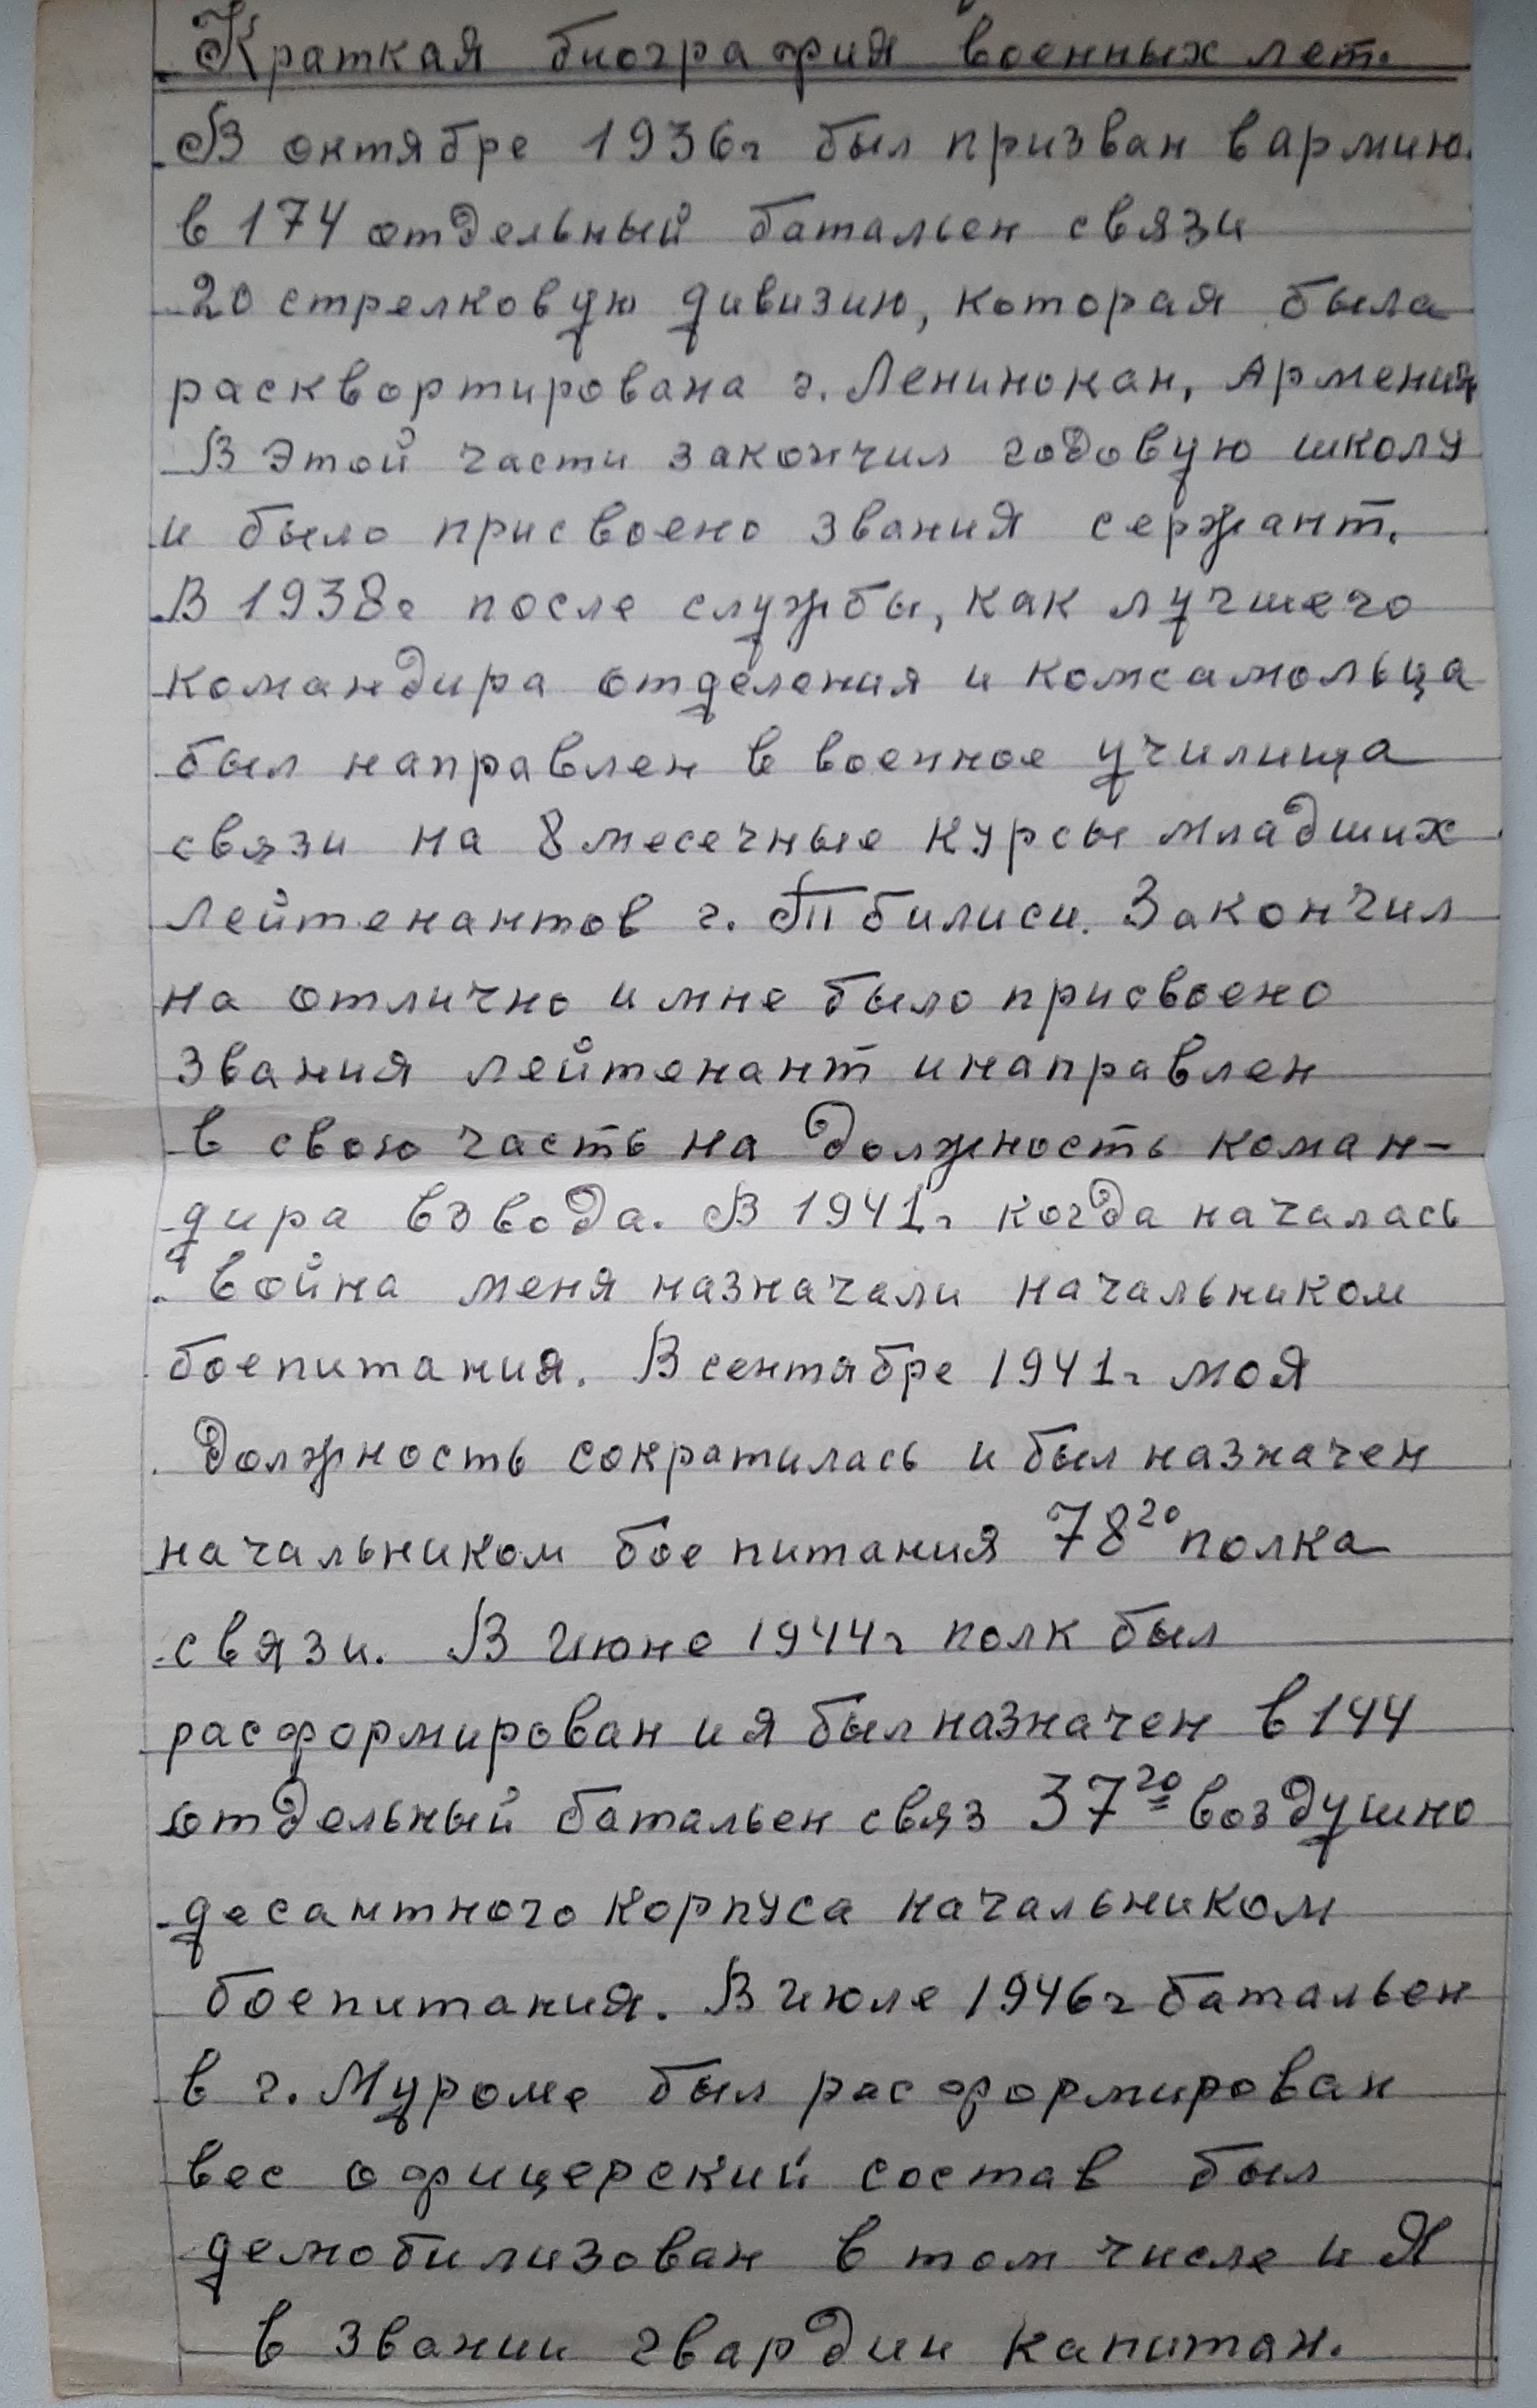 Краткая биография военных лет.
В октябре 1936г был призван в армию.
в 174 отдельный батальен связи
20 стрелковую дивизию, которая была
расквортирована г. Ленинокан, Армения
В этой части закончил годовую школу
и было присвоено звания сержант.
В 1938г после службы, как лучшего
командира отделения и комсамольца
был направлен в военное училища
связи на 8 месечные курсы младших
лейтенантов г. Тбилиси. Закончил
на отлично и мне было присвоено
звания лейтенант и направлен
в свою часть на должность коман-
дира взвода. В 1941г когда началась
война меня назначали начальником
боепитания. В сентябре 1941г моя
должность сократилась и был назначен
начальником боепитания 78го полка
связи. В июне 1944г полк был
расформирован и я был назначен в 144
отдельный батальен связ 37го воздушно
десантного корпуса начальником
боепитания. В июле 1946г батальен
в г. Муроме был расформирован
вес офицерский состав был
демобилизован в том числе и Я
в звании гвардии капитан.